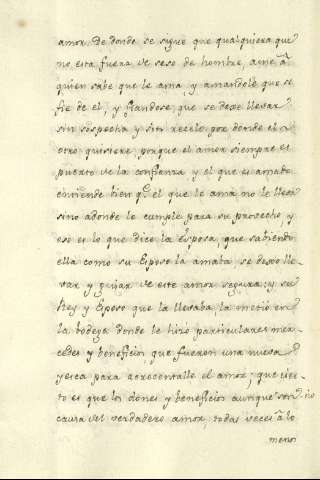 amor. De donde se sigue que qualquiera que
no esta fuera de seso de hombre, ame â
quien sabe que le ama y amandole que se
fie de el, y fiandose, que se dexe llevar
sin sospecha y sin recelo por donde el
otro quisiere, porque el amor siempre es
puerto de la confianza y el que es amado
entiende bien q.e el que le ama no le lleva
sino adonde le cumple para su provecho, y
eso es lo que dice la Esposa, que sabiendo
ella como su Esposo la amaba, se dexo lle-
var y guiar de este amor segura, y su
Rey y Esposo que la llevaba, la metió en
la bodega donde le hizo particulares mer-
cedes y beneficios que fueron una nueva
yesca para acrecentalle el amor, que cier-
to es que los dones y beneficios aunque no son
causa del verdadero amor, todas veces â lo
menos